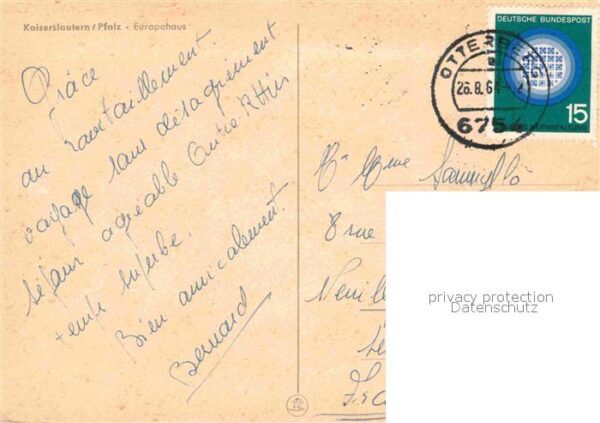 Kaiserslautern / Pfalz - Europahaus
Grâce
au ravitaillement.
voyage sans désagrément
séjour agréable Outre Rhin
temps superbe.
Bien amicalement.
Bernard
DEUTSCHE BUNDESPOST
15
KERNSPALTUNG
OTTERBERG
26.8.64
6754
Mr Mme
8 rue
Neuille
privacy protection
Datenschutz